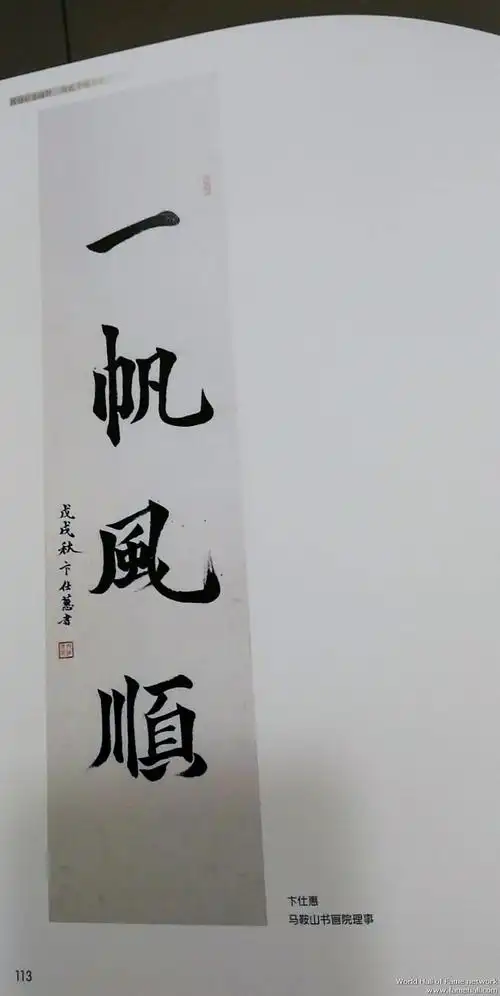 一帆風順
戊戌秋卞仕蕙書
卞仕惠
马鞍山书画院理事
113
World Hall of Fame network
www.famehall.com